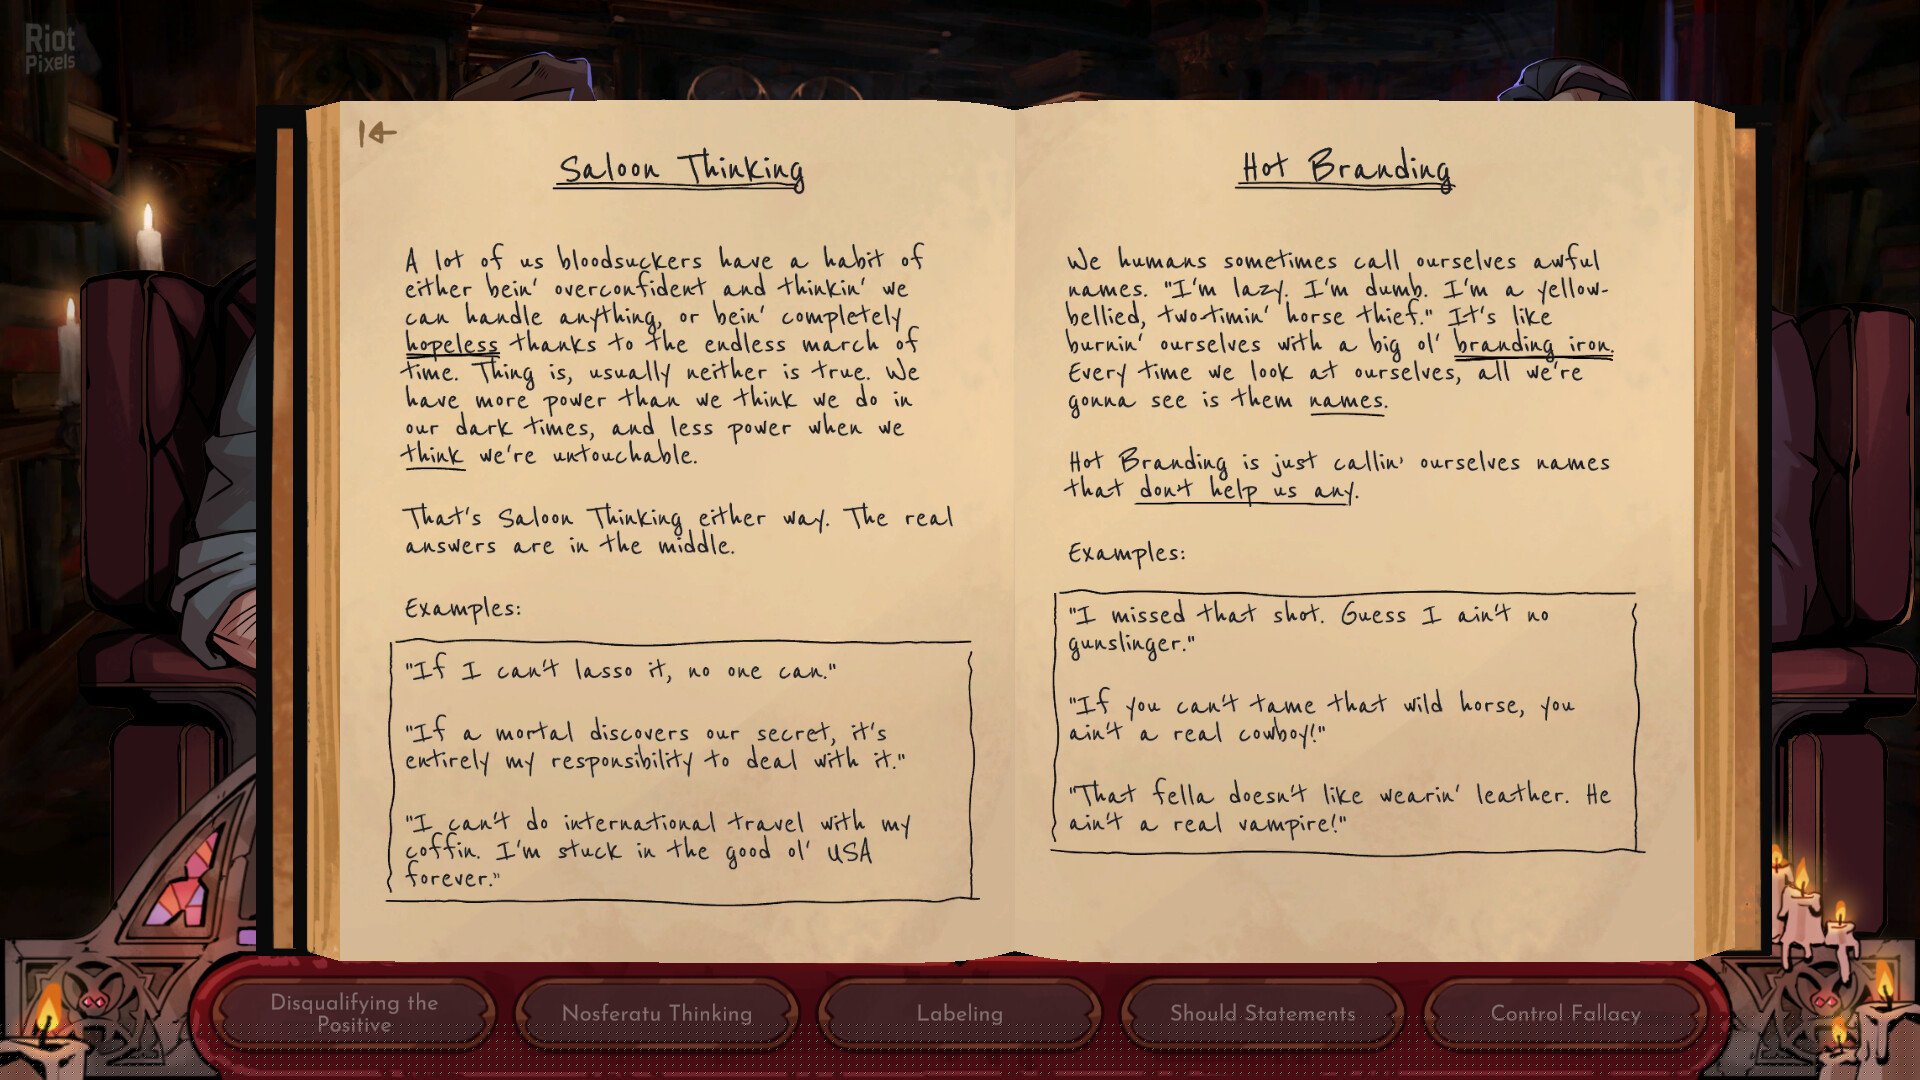 Riot
Pixels
Saloon Thinking
A lot of us bloodsuckers have a habit of
either bein' overconfident and thinkin' we
can handle anything, or bein' completely
hopeless thanks to the endless march of
time. Thing is, usually neither is true. We
have more power than we think we do in
our dark times, and less power when we
think we're untouchable.
That's Saloon Thinking either way. The real
answers are in the middle.
Examples:
"If I can't lasso it, no one can."
"If a mortal discovers our secret, it's
entirely my responsibility to deal with it."
"I can't do international travel with my
coffin. I'm stuck in the good ol' USA
forever."
Hot Branding
We humans sometimes call ourselves awful
names. "I'm lazy. I'm dumb. I'm a yellow-
bellied, two-timin' horse thief." It's like
burnin' ourselves with a big ol' branding iron.
Every time we look at ourselves, all we're
gonna see is them names.
Hot Branding is just callin' ourselves names
that don't help us any.
Examples:
"I missed that shot. Guess I ain't no
gunslinger."
"If you can't tame that wild horse, you
ain't a real cowboy!"
"That fella doesn't like wearin' leather. He
ain't a real vampire!"
Disqualifying the
Positive
Nosferatu Thinking
Labeling
Should Statements
Control Fallacy